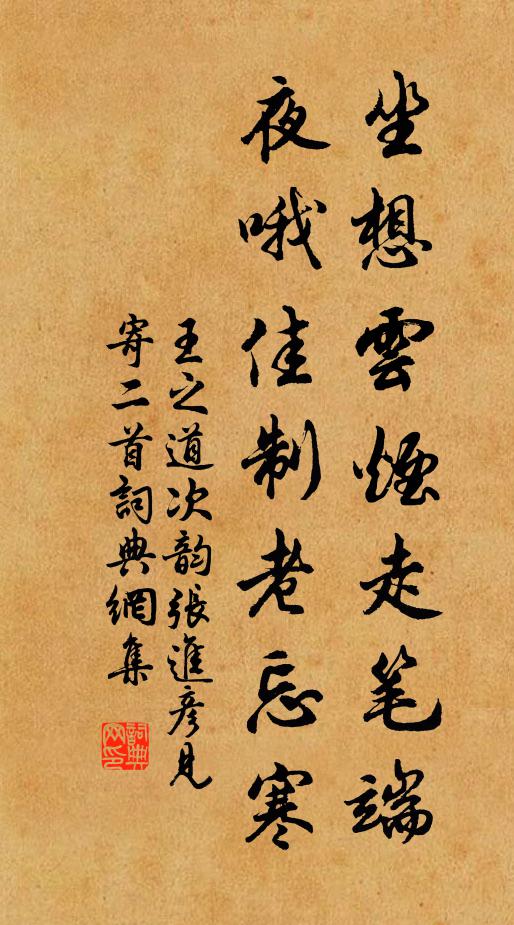 坐想雲煙走笔端
夜哦佳制老忘寒
王之道次韵張進彦見
寄二首詞典網集
詞典網印